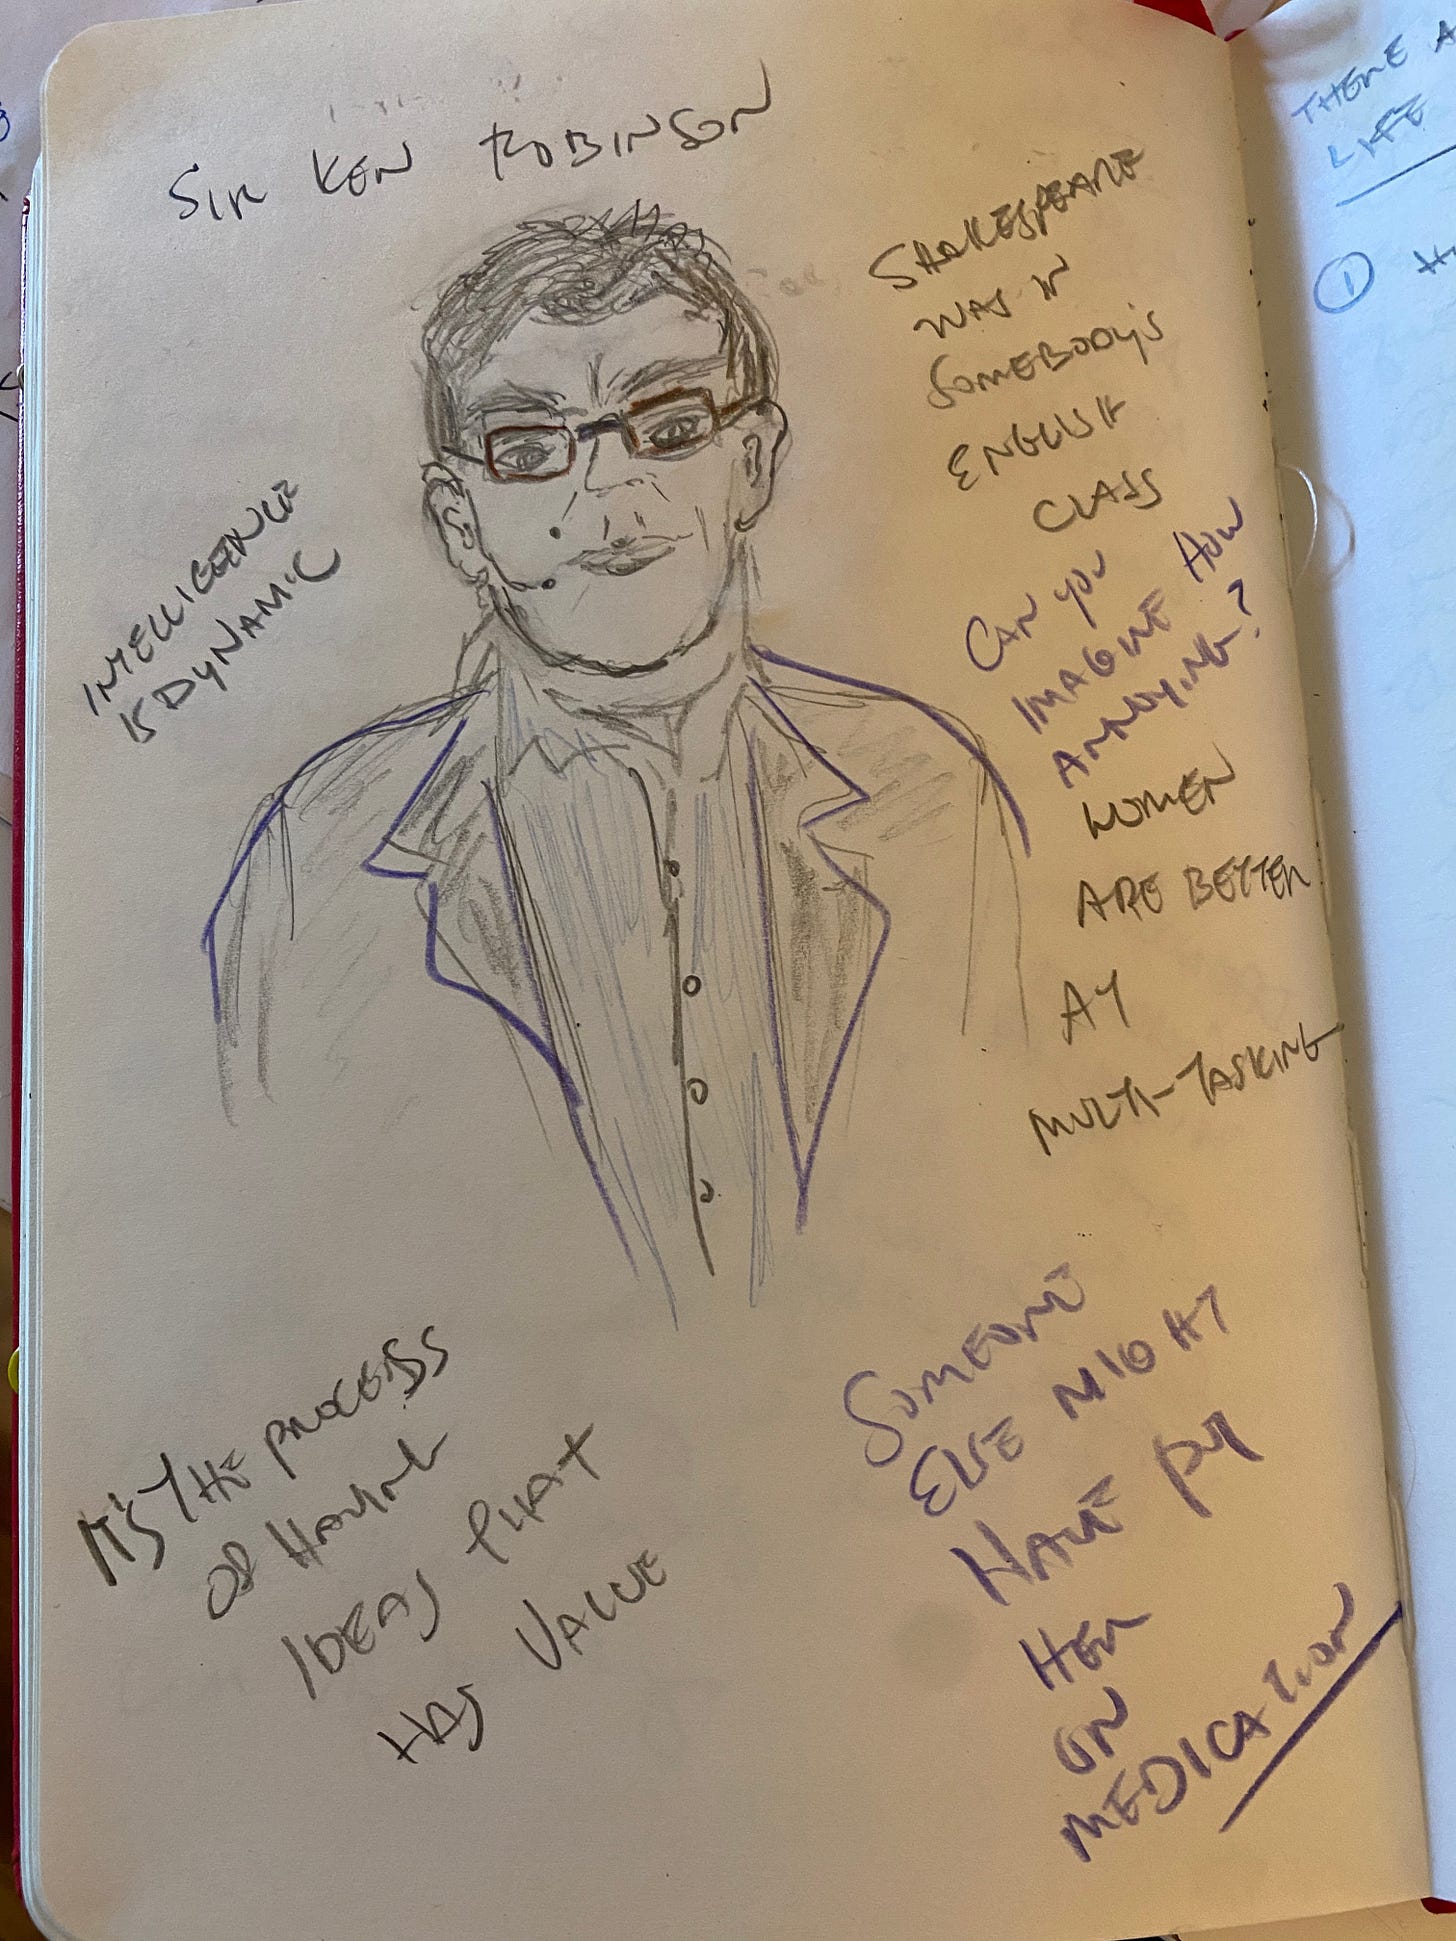 SIR KEN ROBINSON
SHAKESPEARE
WAS IN
SOMEBODY'S
ENGLISH
CLASS
CAN YOU
IMAGINE HOW
ANNOYING?
WOMEN
ARE BETTER
AT
MULTI-TASKING
INTELLIGENCE
IS DYNAMIC
IT'S THE PROCESS
OF HAVING
IDEAS THAT
HAS VALUE
SOMEONE
ELSE MIGHT
HAVE PUT
HER
ON
MEDICATION
THERE
LIFE
1